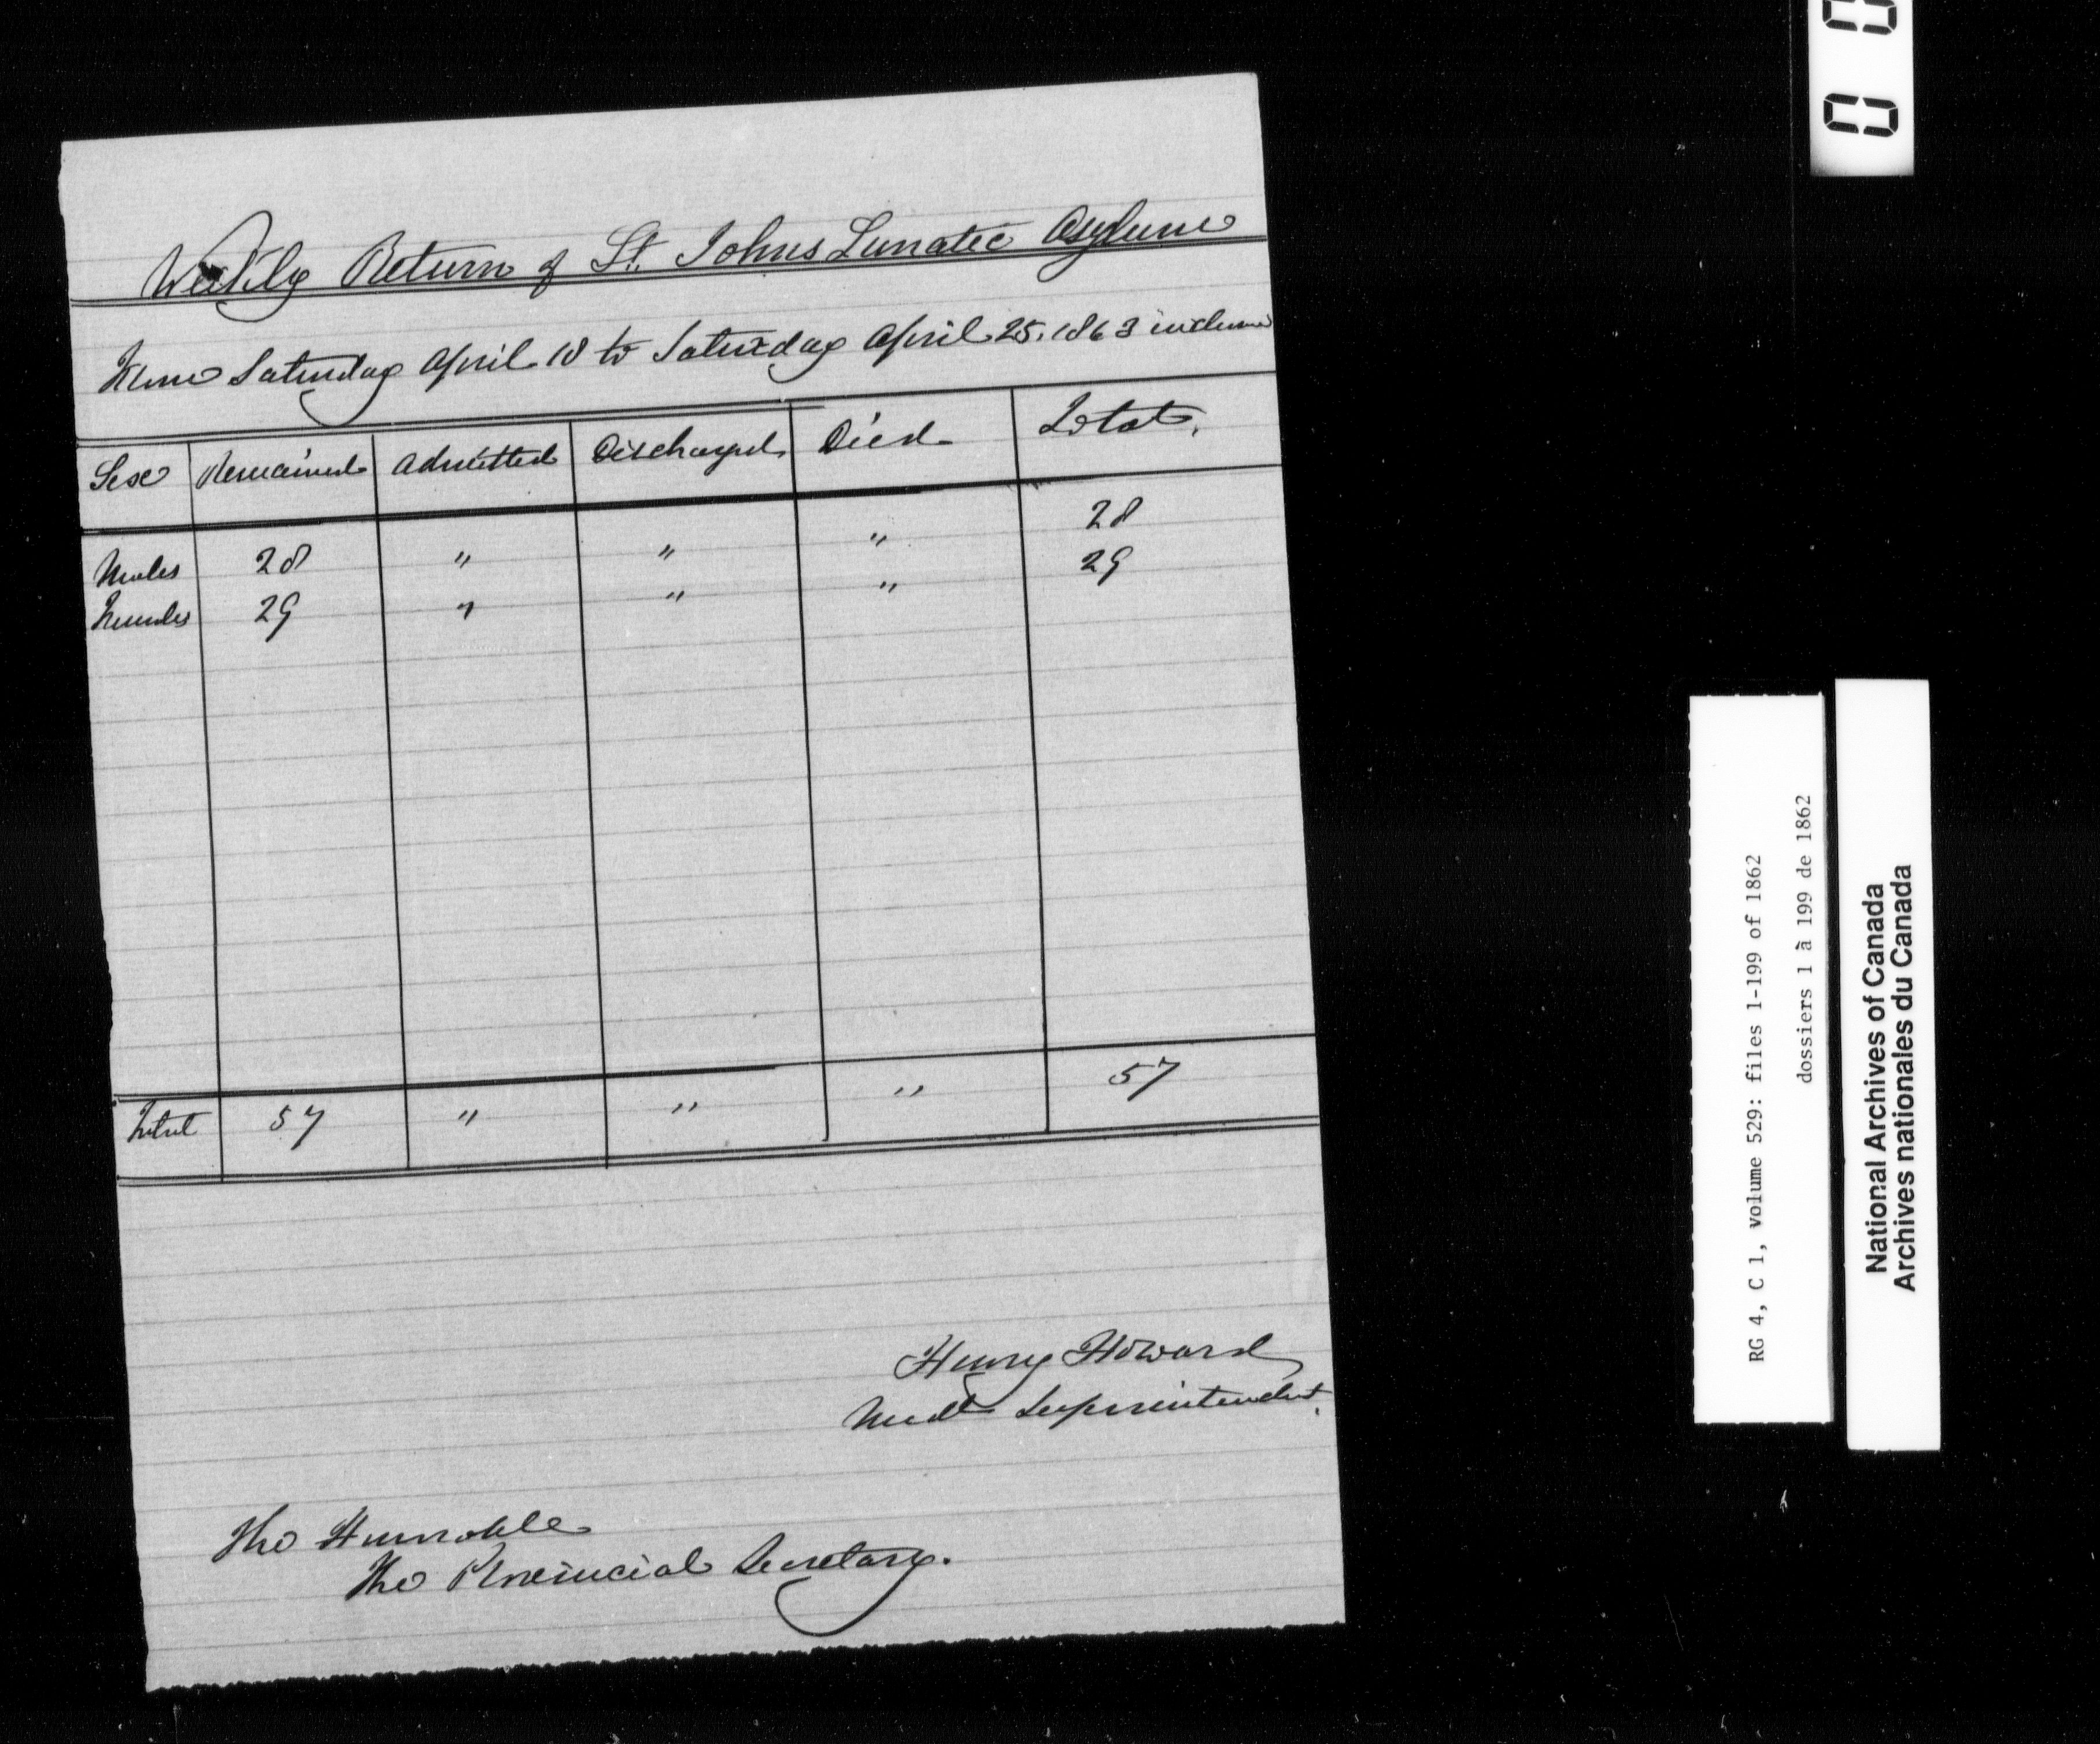 Weekly Return of St. Johns Lunatic Asylum
From Saturday April 18 to Saturday April 25. 1863 inclusive
Sex Remained Admitted Discharged Died Total.
Males 28 " " " 28
Females 29 " " " 29
Total 57 " " " 57
Henry Howard
Medl Superintendent.
The Honorable
The Provincial Secretary.
0 0
RG 4, C 1, volume 529: files 1-199 of 1862
dossiers 1 à 199 de 1862
National Archives of Canada
Archives nationales du Canada